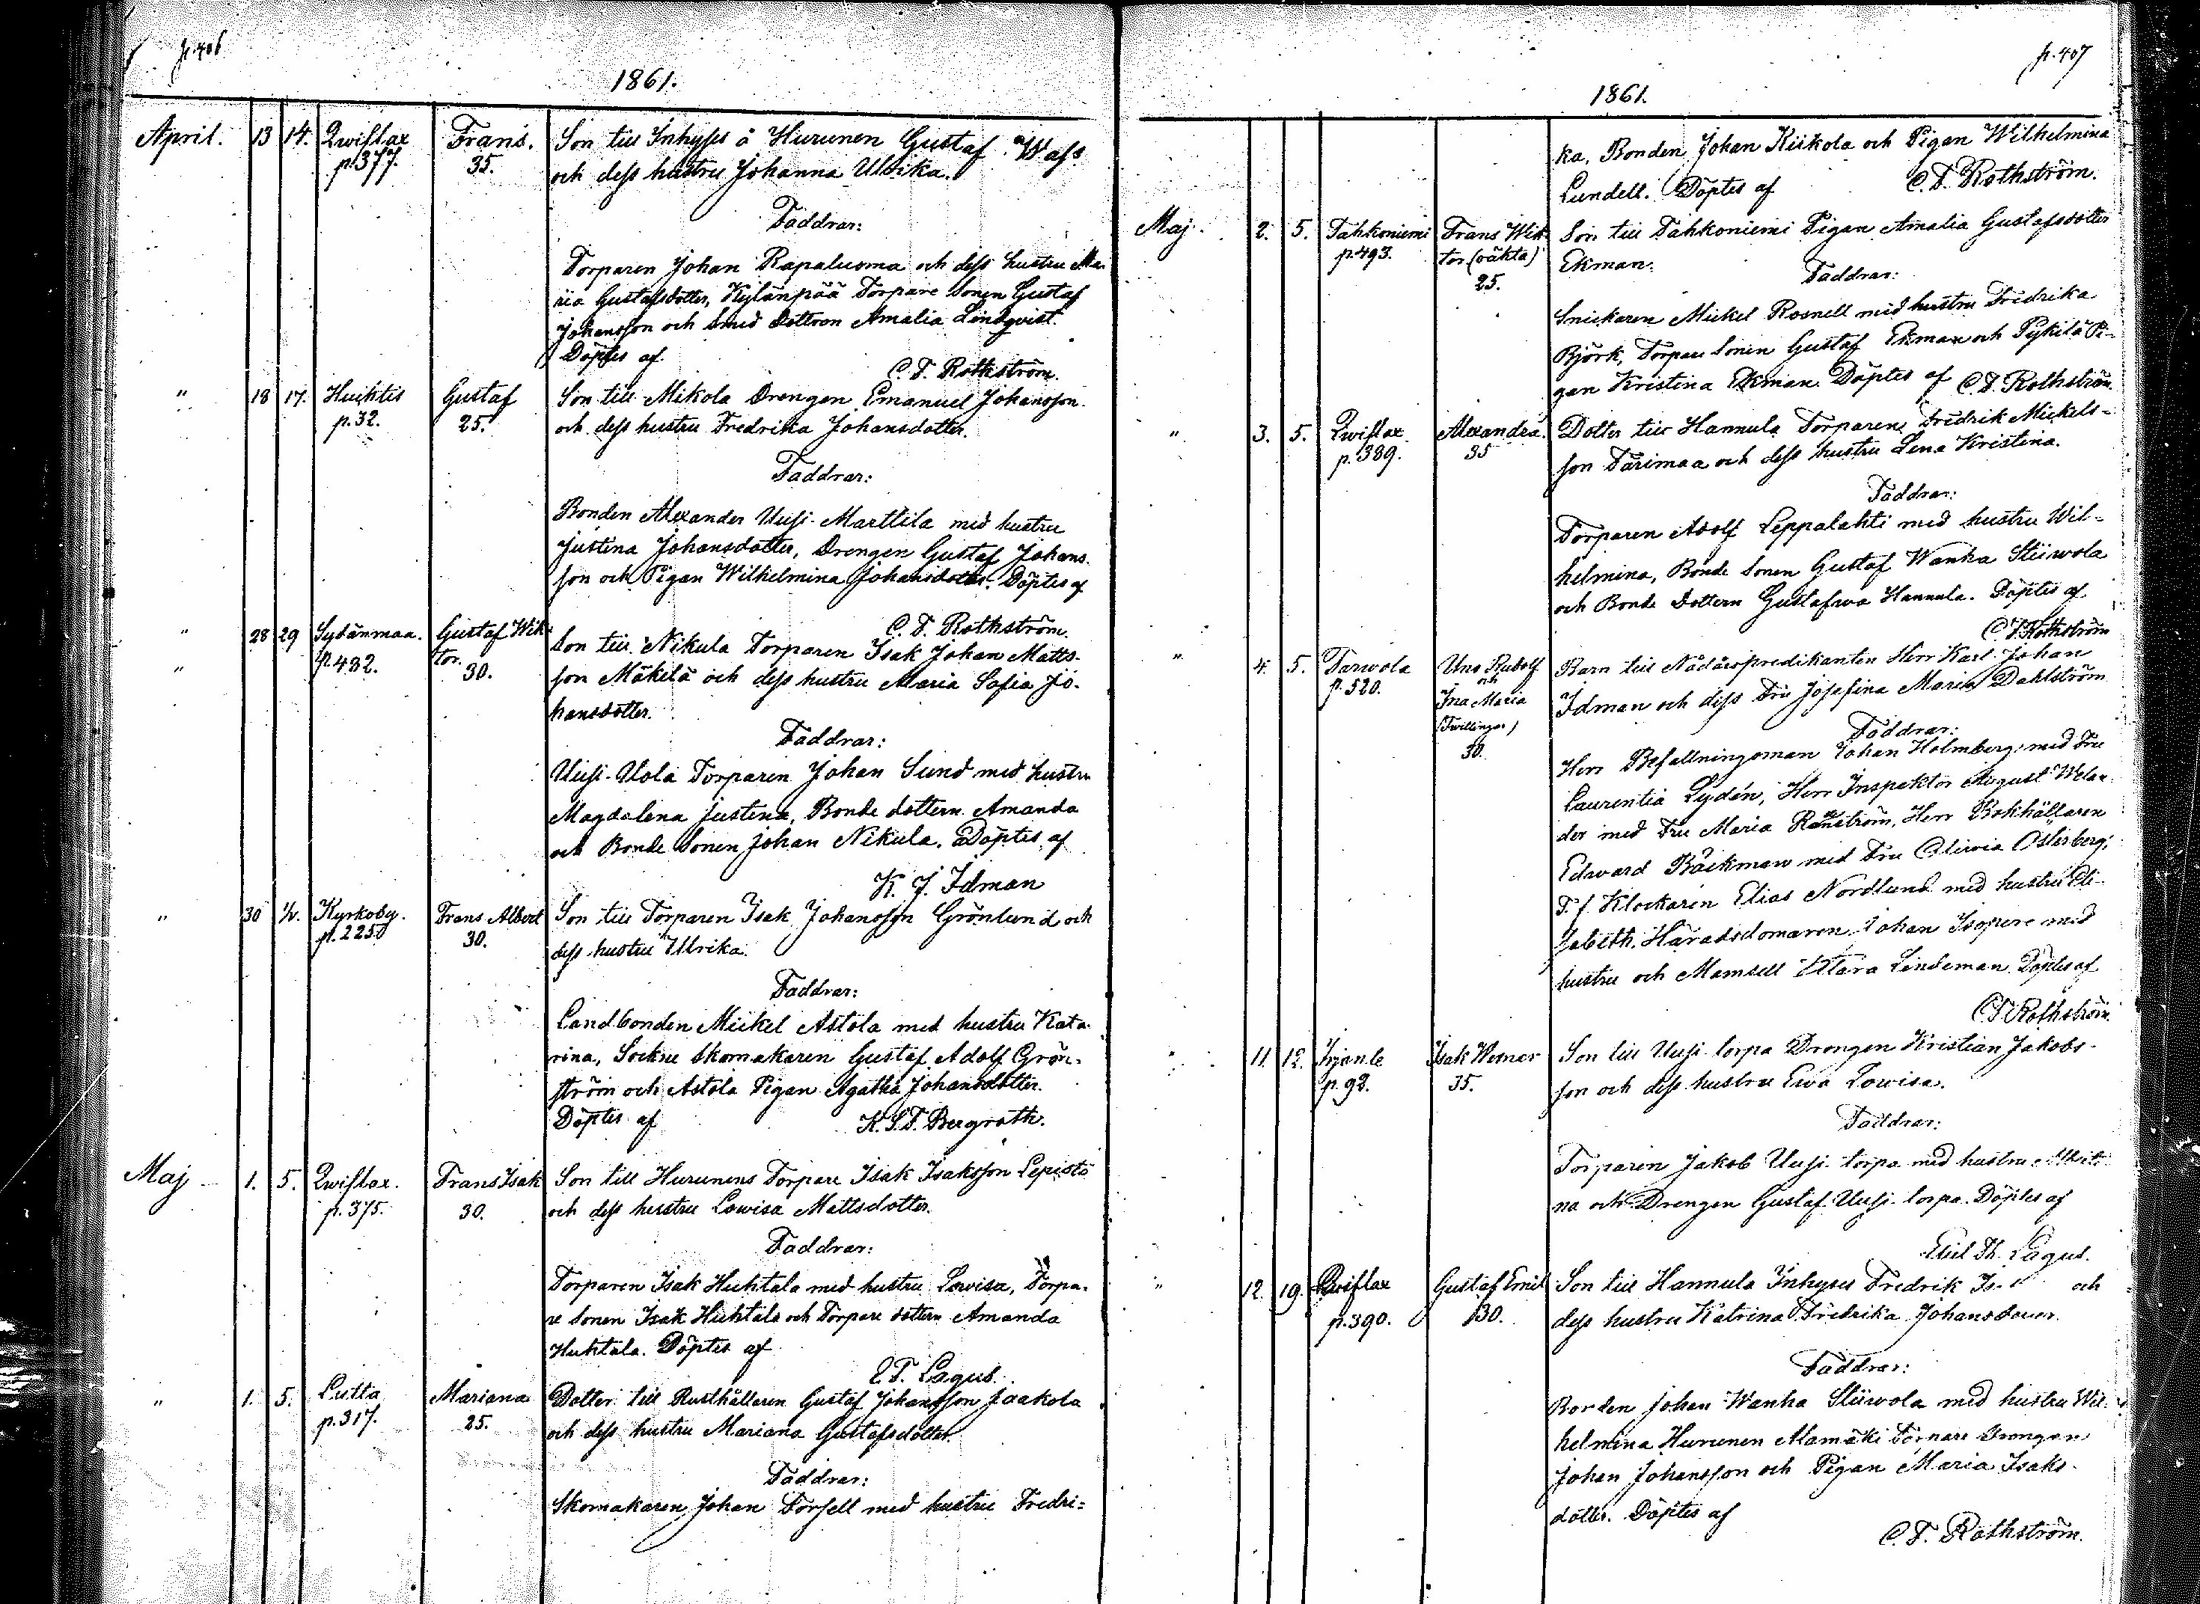 p. 406
1861.
April. 13 14. Qwiflax Frans. Son till Inhyses å Hurunen Gustaf Wass
p. 377. 35. och dess hustru Johanna Ulrika.
Faddrar:
Torparen Johan Rapaluoma och dess hustru Ma-
ria Gustafsdotter, Kylänpää Torpare Sonen Gustaf
Johansson och Smed dottren Amalia Lindqvist.
Döptes af
C. F. Rothström.
" 18 17. Huihtis Gustaf Son till Mikola Drengen Emanuel Johansson
p. 32. 25. och dess hustru Fredrika Johansdotter.
Faddrar:
Bonden Alexander Uusi-Marttila med hustru
Justina Johansdotter, Drengen Gustaf Johans-
son och Pigan Wilhelmina Johansdotter. Döptes af
C. F. Rothström.
" 28 29 Sydänmaa. Gustaf Wik- Son till Nikula Torparen Isak Johan Matts-
" p. 482. tor. 30. son Mäkilä och dess hustru Maria Sofia Jo-
hansdotter.
Faddrar:
Uusi-Uola Torparen Johan Sund med hustru
Magdalena Justina, Bonde dottern Amanda
och Bonde Sonen Johan Nikula. Döptes af
K. J. Idman
" 30 1/5. Kyrkoby. Frans Albert Son till Torparen Isak Johansson Grönlund och
p. 225. 30. dess hustru Ulrika.
Faddrar:
Landbonden Mickel Astola med hustru Kata-
rina, Sockne Skomakaren Gustaf Adolf Grön-
ström och Astola Pigan Agatha Johansdotter.
Döptes af K. S. F. Bergroth.
Maj 1. 5. Qwiflax. Frans Isak Son till Hurunens Torpare Isak Isaksson Lepistö
p. 375. 30. och dess hustru Lowisa Mattsdotter.
Faddrar:
Torparen Isak Huhtala med hustru Lowisa, Torpa-
re Sonen Isak Huhtala och Torpare dottern Amanda
Huhtala. Döptes af
E. F. Lagus.
" 1. 5. Lutta Mariana Dotter till Rusthållaren Gustaf Johansson Jaakola
p. 317. 25. och dess hustru Mariana Gustafsdotter.
Faddrar:
Skomakaren Johan Forsell med hustru Fredri=
p. 407
1861.
ka, Bonden Johan Kiikola och Pigan Wilhelmina
Lundell. Döptes af C. F. Rothström.
Maj. 2. 5. Tahkoniemi Frans Wik- Son till Tahkoniemi Pigan Amalia Gustafsdotter
p. 493. tor (oäkta) Ekman.
25. Faddrar:
Snickaren Mickel Rosnell med hustru Fredrika
Björk, Torpare Sonen Gustaf Ekman och Pykilä Pi-
gan Kristina Ekman. Döptes af C. F. Rothström
" 3. 5. Qwiflax. Alexandra. Dotter till Hannula Torparen Fredrik Mickels-
p. 389. 35 son Tarimaa och dess hustru Lena Kristina.
Faddrar:
Torparen Adolf Leppalahti med hustru Wil-
helmina, Bonde Sonen Gustaf Wanha Stiiwola
och Bonde dottern Gustafwa Hannula. Döptes af
C. F. Rothström
" 4. 5. Tarwola Uno Rudolf Barn till Nådårspredikanten Herr Karl Johan
p. 520. och
Ina Maria Idman och dess Fru Josefina Maria Dahlström
(Twillingar) Faddrar:
30. Herr Befallningsman Johan Holmberg med Fru
Laurentia Lydén, Herr Inspektor August Welan-
der med Fru Maria Ramström, Herr Bokhållaren
Edward Bäckman med Fru Oliwia Österberg,
T. f. Klockaren Elias Nordlund med hustru Eli-
sabeth, Häradsdomaren Johan Isopere med
hustru och Mamsell Klara Lindeman. Döptes af
C. F. Rothström.
11. 12. p. 92. Isak Werner Son till Uusi-torpa Drengen Kristian Jakobs-
35. son och dess hustru Ewa Lowisa.
Faddrar:
Torparen Jakob Uusi-torpa med hustru
na och Drengen Gustaf Uusi-torpa. Döptes af
Lagus.
" 12. 19. Qwiflax Gustaf Emil Son till Hannula Inhyses Fredrik och
p. 390. 30. dess hustru Katrina Fredrika Johansdotter.
Faddrar:
Bonden Johan Wanha Stiiwola med hustru Wil-
helmina, Hurunen Alamäki Torpare Drengen
Johan Johansson och Pigan Maria Isaks-
dotter. Döptes af
C. F. Rothström.